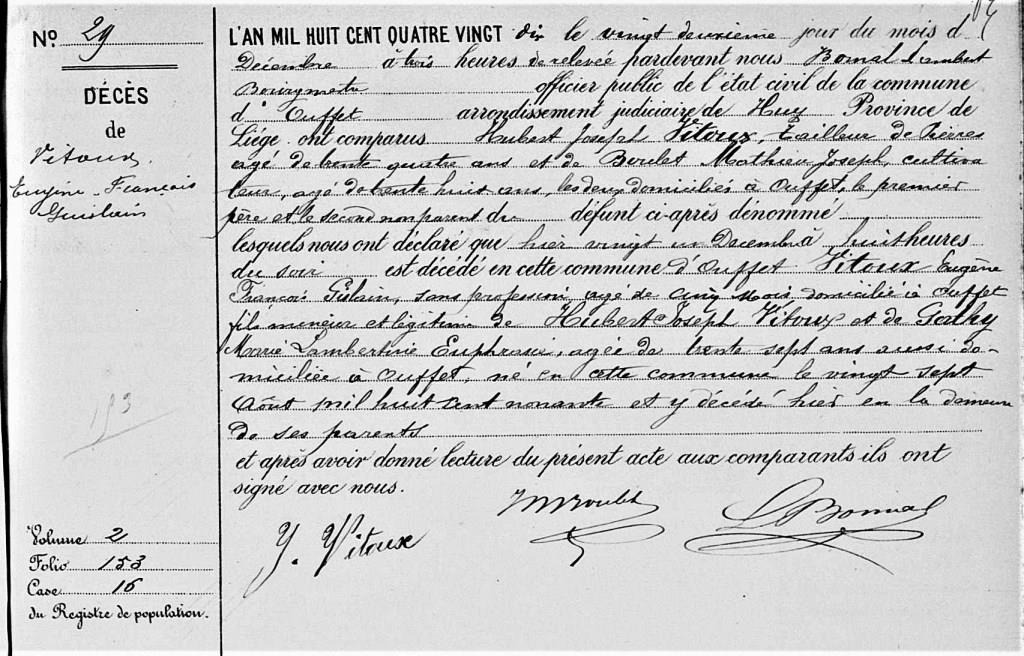 No 29
DÉCÈS
de
Vitoux.
Eugène-François
Guislain
153
Volume 2
Folio 153
Case 16
du Registre de population.
L'AN MIL HUIT CENT QUATRE VINGT dix le vingt deuxième jour du mois d
Décembre à trois heures de relevée pardevant nous Bomal Lambert
Bourgmestre officier public de l'état civil de la commune
d' Ouffet arrondissement judiciaire de Huy Province de
Liége ont comparus Hubert Joseph Vitoux, tailleur de pierres
agé de trente quatre ans et de Boulet Mathieu Joseph, cultiva
teur, agé de trente huit ans, les deux domiciliés à Ouffet, le premier
père et le second non parent du défunt ci-après dénommé
lesquels nous ont déclaré que hier vingt un Decembre à huit heures
du soir est décédé en cette commune d'Ouffet Vitoux Eugène
François Gislain, sans profession, agé de cinq mois domicilié à Ouffet
fils mineur et légitime de Hubert Joseph Vitoux et de
Marie Lambertine Euphrasie, agée de trente sept ans aussi do-
miciliée à Ouffet, né en cette commune le vingt sept
Août mil huit cent nonante et y décédé hier en la demeure
de ses parents
et après avoir donné lecture du présent acte aux comparants ils ont
signé avec nous.
MBoulet
LBomal
J. Vitoux